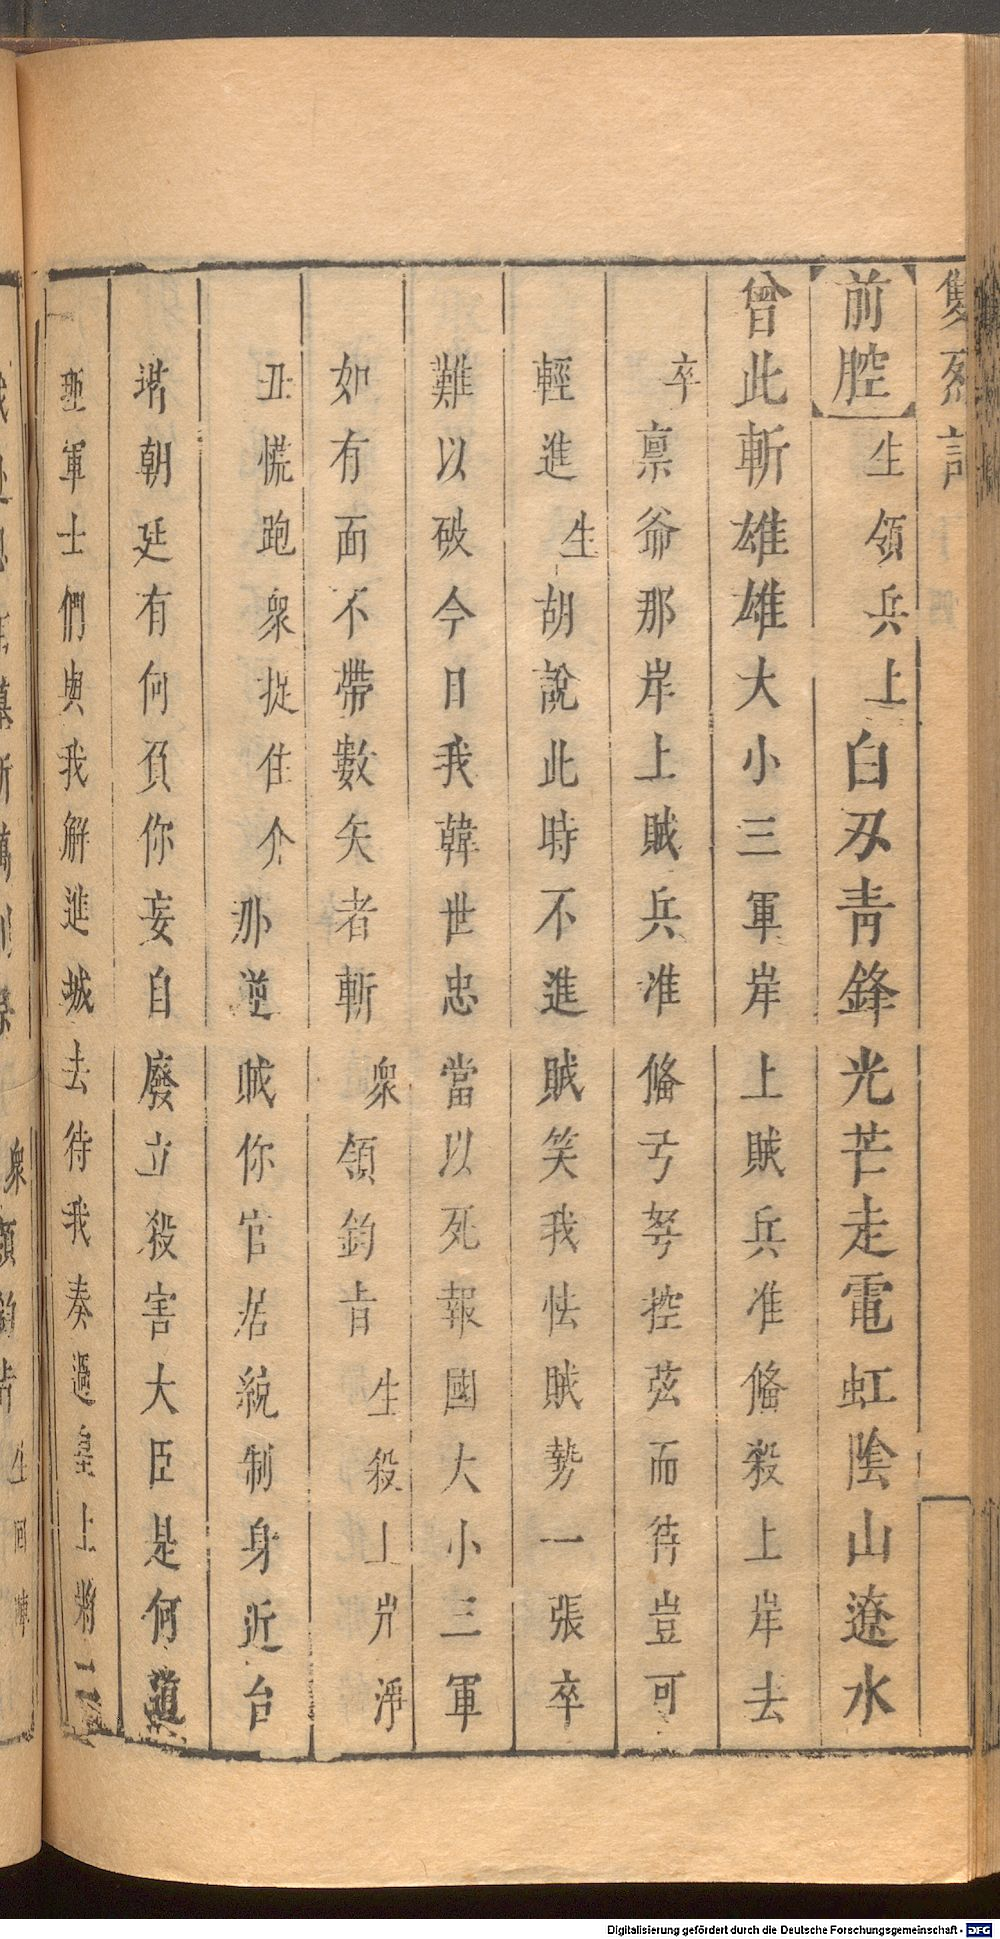 雙烈記
【前腔】生領兵上白刃青鋒光芒走電虹陰山遼水
曾此斬雄雄大小三軍岸上賊兵准俻殺上岸去
卒禀爺那岸上賊兵准俻弓弩控弦而待豈可
輕進生胡說此時不進賊笑我怯賊勢一張卒
難以破今日我韓世忠當以死報國大小三軍
如有面不帶數矢者斬衆領鈞旨生殺上岸淨
丑慌跑衆捉住介那逆賊你官居統制身近台
堦朝廷有何負你妄自廢立殺害大臣是何道
理軍士們與我解進城去待我奏過皇上將二
衆領鈞旨生回陣
Digitalisierung gefördert durch die Deutsche Forschungsgemeinschaft - DFG